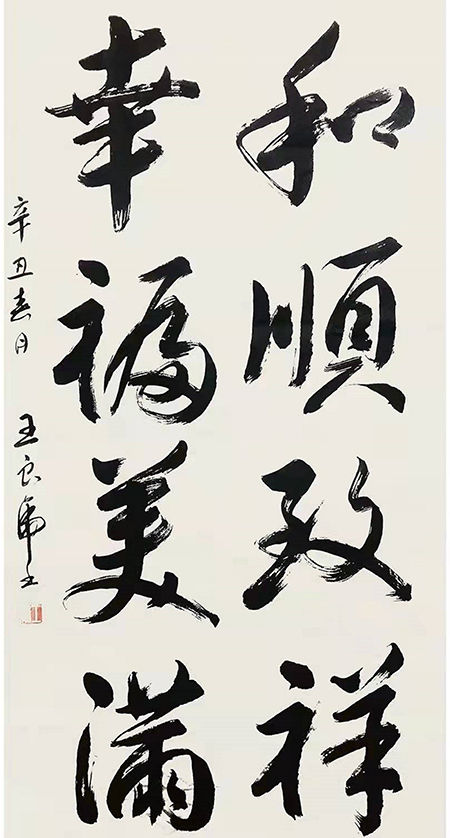 和順致祥
幸福美滿
辛丑春月 王良虎书